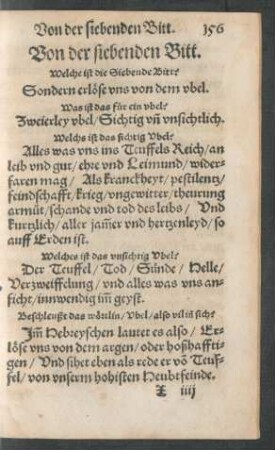 Von der siebenden Bitt. 156
Von der siebenden Bitt.
Welche ist die Siebende Bitt?
Sondern erlöse vns von dem vbel.
Was ist das für ein vbel?
Zweierley vbel/Sichtig vñ vnsichtlich.
Welchs ist das sichtig Vbel?
Alles was vns ins Teuffels Reich/an
leib vnd gut/ehre vnd Leimund/wider-
faren mag/Als kranckheyt/pestilentz/
feindschafft/krieg/vngewitter/theurung
armůt/schande vnd tod des leibs/Vnd
kurtzlich/aller jam̃er vnd hertzenleyd/so
auff Erden ist.
Welches ist das vnsichtig Vbel?
Der Teuffel/Tod/Sünde/Helle/
Verzweiffelung/vnd alles was vns an-
ficht/innwendig im̃ geyst.
Beschleußt das wörtlin/Vbel/also vil in̄ sich?
Im̃ Hebreyschen lautet es also/Er-
löse vns von dem argen/oder boßhaffti-
gen/Vnd sihet eben als rede er võ Teuf-
fel/von vnserm höhisten Heubtfeinde.
X iiij